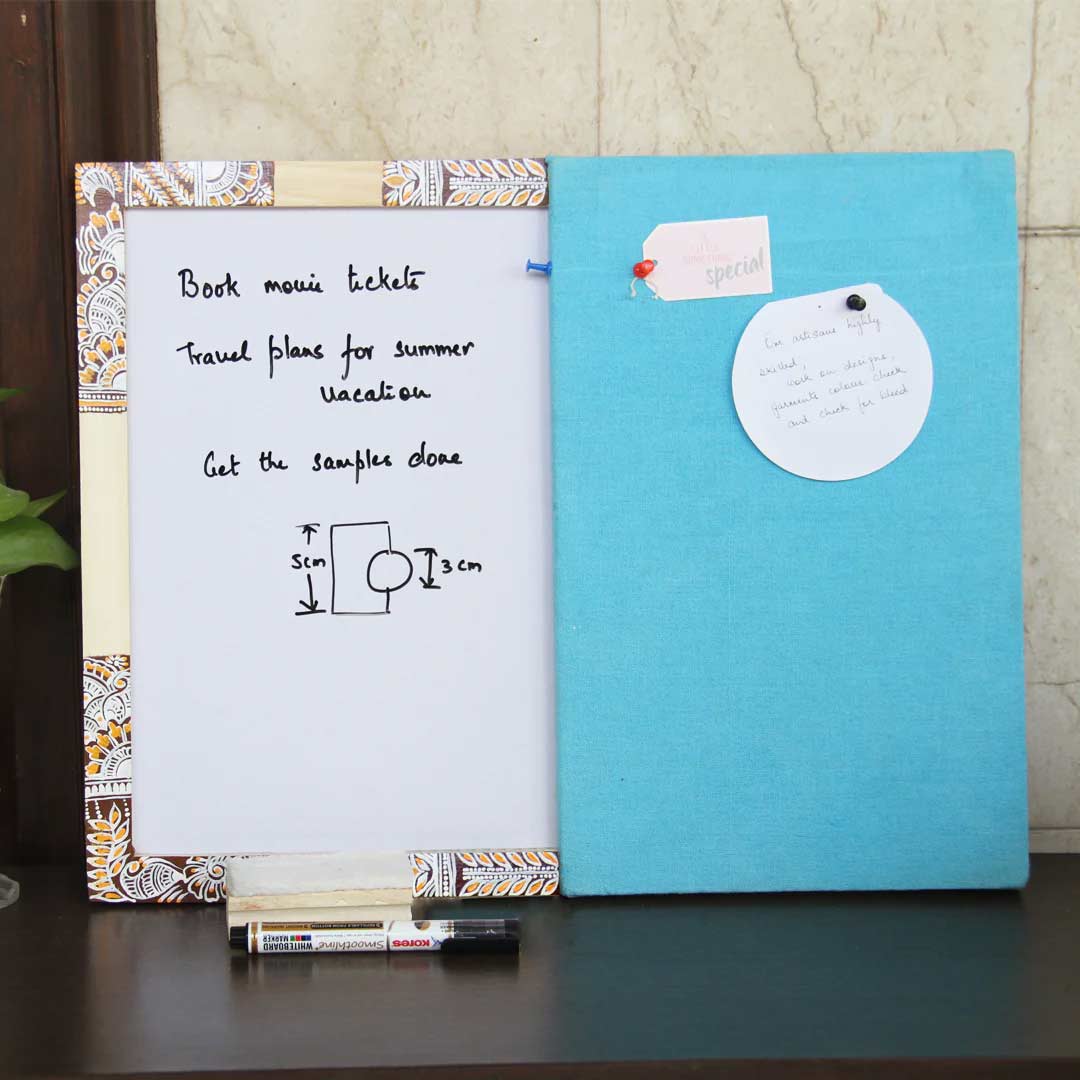 Book movie tickets
Travel plans for summer
vacation
Get the samples done
5cm
3 cm
A
LITTLE
SOMETHING
special
artisans highly
skilled,
work on designs,
garments colour check
and check for bleed
WHITEBOARD
MARKER
Smoothline
Kores